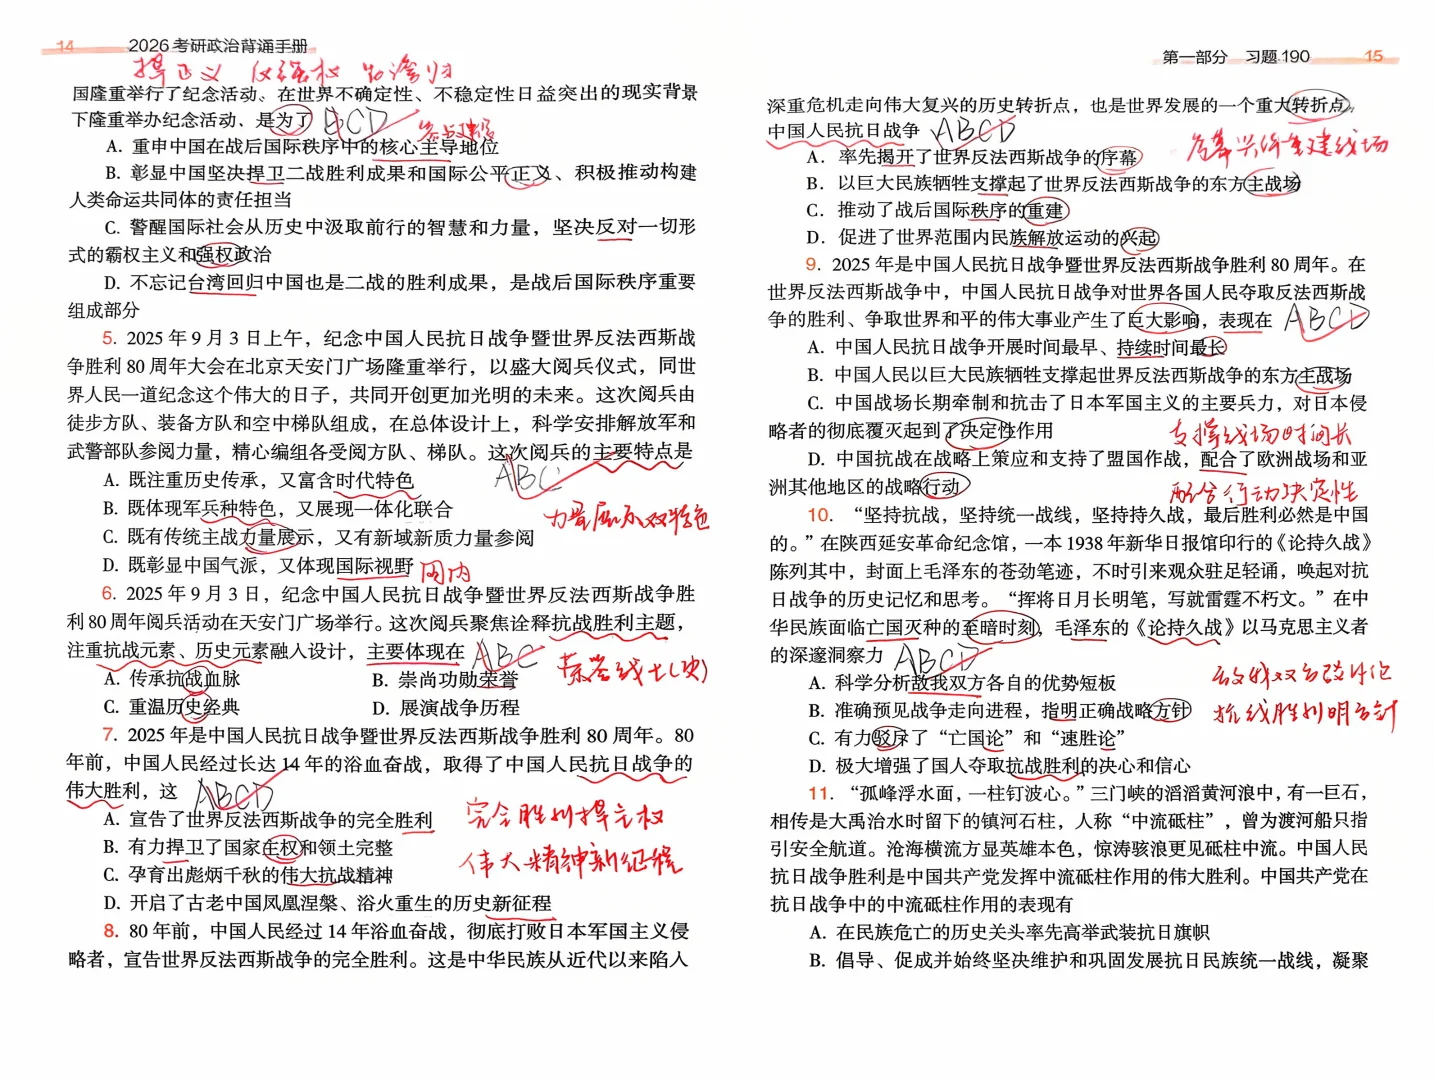 14 2026考研政治背诵手册
捍正义 反强权 台湾归
国隆重举行了纪念活动、在世界不确定性、不稳定性日益突出的现实背景
下隆重举办纪念活动、是为了 BCD
A. 重申中国在战后国际秩序中的核心主导地位
B. 彰显中国坚决捍卫二战胜利成果和国际公平正义、积极推动构建
人类命运共同体的责任担当
C. 警醒国际社会从历史中汲取前行的智慧和力量，坚决反对一切形
式的霸权主义和强权政治
D. 不忘记台湾回归中国也是二战的胜利成果，是战后国际秩序重要
组成部分
5. 2025 年 9 月 3 日上午，纪念中国人民抗日战争暨世界反法西斯战
争胜利 80 周年大会在北京天安门广场隆重举行，以盛大阅兵仪式，同世
界人民一道纪念这个伟大的日子，共同开创更加光明的未来。这次阅兵由
徒步方队、装备方队和空中梯队组成，在总体设计上，科学安排解放军和
武警部队参阅力量，精心编组各受阅方队、梯队。这次阅兵的主要特点是
A. 既注重历史传承，又富含时代特色 ABC
B. 既体现军兵种特色，又展现一体化联合
力量展示双特色
C. 既有传统主战力量展示，又有新域新质力量参阅
D. 既彰显中国气派，又体现国际视野 国内
6. 2025 年 9 月 3 日，纪念中国人民抗日战争暨世界反法西斯战争胜
利 80 周年阅兵活动在天安门广场举行。这次阅兵聚焦诠释抗战胜利主题，
注重抗战元素、历史元素融入设计，主要体现在 ABC
荣誉战士(史)
A. 传承抗战血脉 B. 崇尚功勋荣誉
C. 重温历史经典 D. 展演战争历程
7. 2025 年是中国人民抗日战争暨世界反法西斯战争胜利 80 周年。80
年前，中国人民经过长达 14 年的浴血奋战，取得了中国人民抗日战争的
伟大胜利，这 ABCD
A. 宣告了世界反法西斯战争的完全胜利 完全胜利捍主权
B. 有力捍卫了国家主权和领土完整
伟大精神新征程
C. 孕育出彪炳千秋的伟大抗战精神
D. 开启了古老中国凤凰涅槃、浴火重生的历史新征程
8. 80 年前，中国人民经过 14 年浴血奋战，彻底打败日本军国主义侵
略者，宣告世界反法西斯战争的完全胜利。这是中华民族从近代以来陷入
第一部分 习题 190 15
深重危机走向伟大复兴的历史转折点，也是世界发展的一个重大转折点。
中国人民抗日战争 ABCD
序幕兴体重建战场
A. 率先揭开了世界反法西斯战争的序幕
B. 以巨大民族牺牲支撑起了世界反法西斯战争的东方主战场
C. 推动了战后国际秩序的重建
D. 促进了世界范围内民族解放运动的兴起
9. 2025 年是中国人民抗日战争暨世界反法西斯战争胜利 80 周年。在
世界反法西斯战争中，中国人民抗日战争对世界各国人民夺取反法西斯战
争的胜利、争取世界和平的伟大事业产生了巨大影响，表现在 ABCD
A. 中国人民抗日战争开展时间最早、持续时间最长
B. 中国人民以巨大民族牺牲支撑起世界反法西斯战争的东方主战场
C. 中国战场长期牵制和抗击了日本军国主义的主要兵力，对日本侵
略者的彻底覆灭起到了决定性作用 支撑战场时间长
D. 中国抗战在战略上策应和支持了盟国作战，配合了欧洲战场和亚
洲其他地区的战略行动 配合行动决定性
10. “坚持抗战，坚持统一战线，坚持持久战，最后胜利必然是中国
的。”在陕西延安革命纪念馆，一本 1938 年新华日报馆印行的《论持久战》
陈列其中，封面上毛泽东的苍劲笔迹，不时引来观众驻足轻诵，唤起对抗
日战争的历史记忆和思考。“挥将日月长明笔，写就雷霆不朽文。”在中
华民族面临亡国灭种的至暗时刻，毛泽东的《论持久战》以马克思主义者
的深邃洞察力 ABCD
A. 科学分析敌我双方各自的优势短板 敌我双方驳斥论
B. 准确预见战争走向进程，指明正确战略方针 抗战胜利明方针
C. 有力驳斥了“亡国论”和“速胜论”
D. 极大增强了国人夺取抗战胜利的决心和信心
11. “孤峰浮水面，一柱钉波心。”三门峡的滔滔黄河浪中，有一巨石，
相传是大禹治水时留下的镇河石柱，人称“中流砥柱”，曾为渡河船只指
引安全航道。沧海横流方显英雄本色，惊涛骇浪更见砥柱中流。中国人民
抗日战争胜利是中国共产党发挥中流砥柱作用的伟大胜利。中国共产党在
抗日战争中的中流砥柱作用的表现有
A. 在民族危亡的历史关头率先高举武装抗日旗帜
B. 倡导、促成并始终坚决维护和巩固发展抗日民族统一战线，凝聚